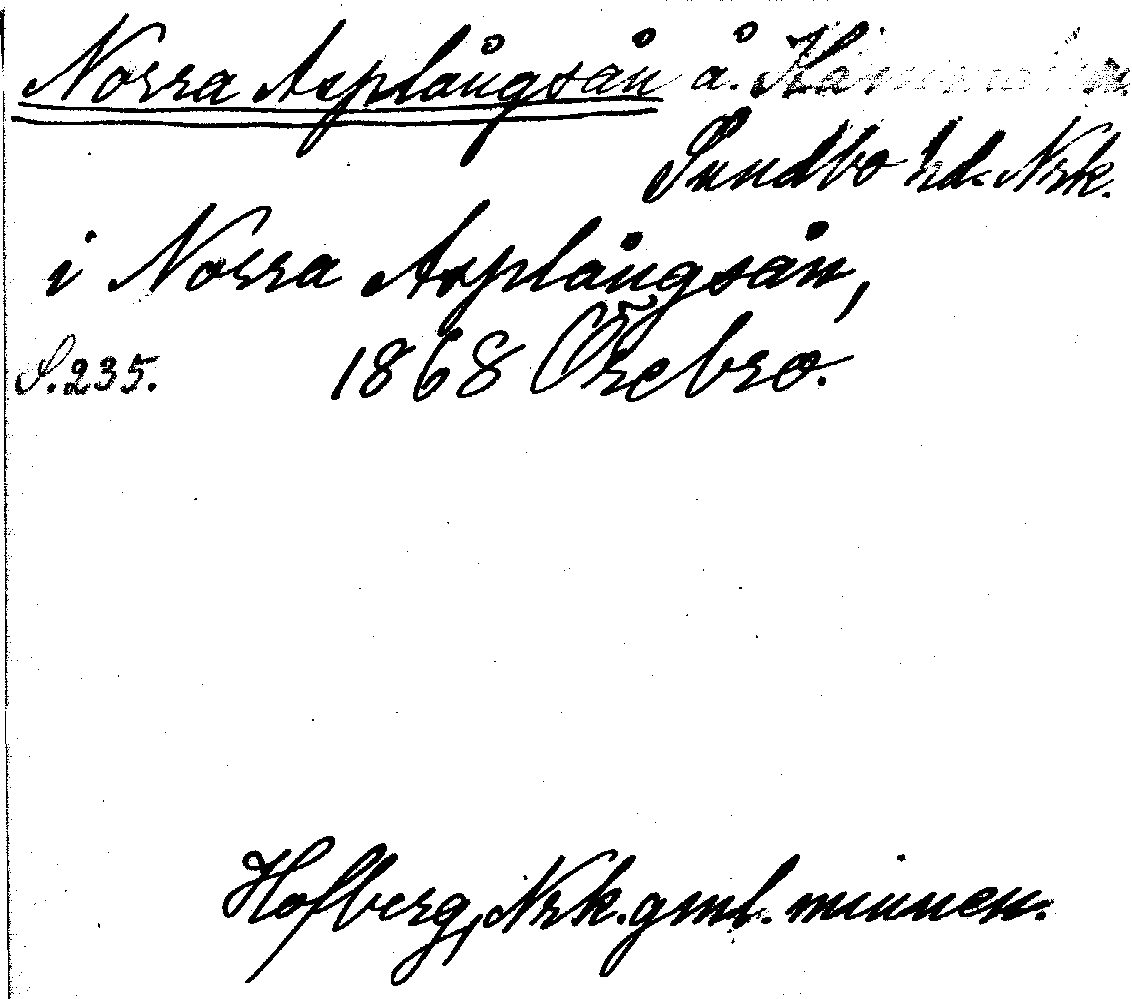 Norra Asplångsån å.
Sundbo hd. Nrk.
i Norra Asplångsån,
S. 235. 1868 Örebro.
Hofberg, Nrk. gml. minnen.